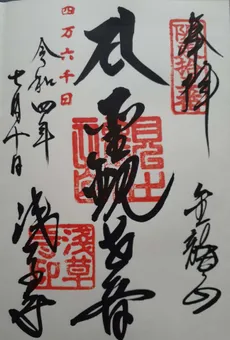 奉拝
金龍山
聖観世音
四万六千日
令和四年
七月十日
浅草寺
浅草寺印